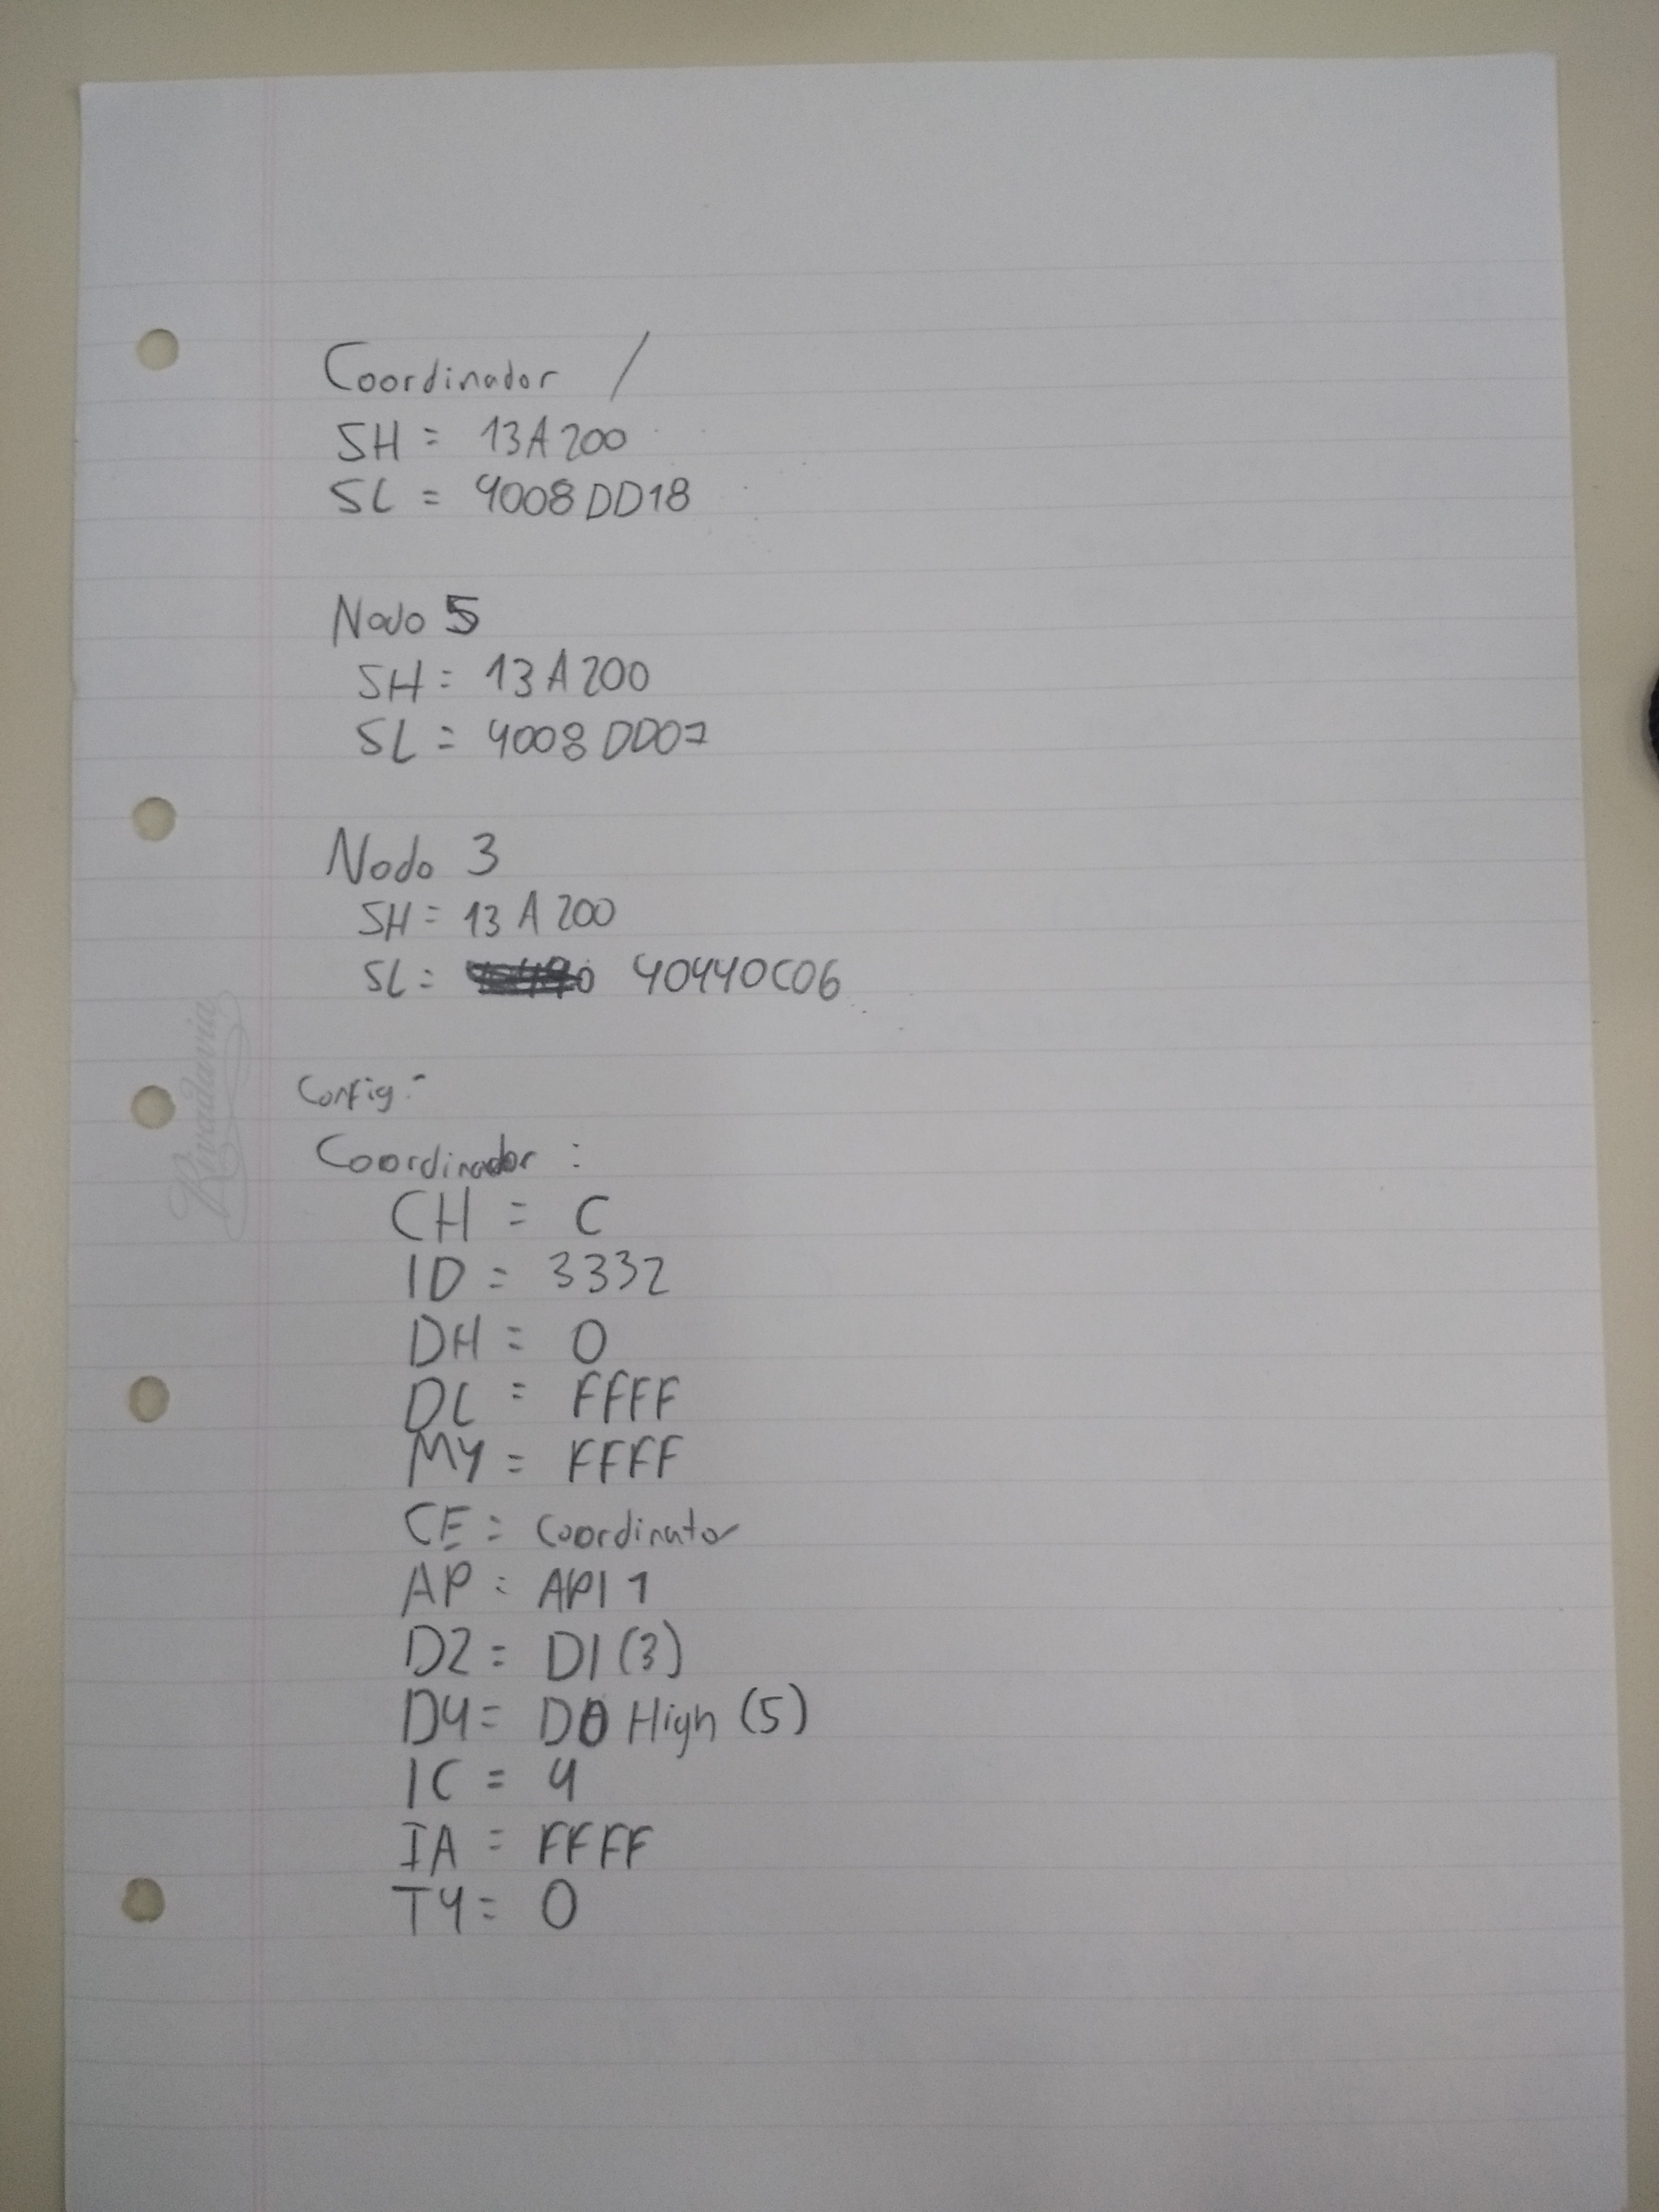 Coordinador /
SH = 13A200
SL = 4008DD18
Nodo 5
SH = 13A200
SL = 4008DD07
Nodo 3
SH = 13A200
SL = 40440C06
Config:
Coordinador :
CH = C
ID = 3332
DH = 0
DL = FFFF
MY = FFFF
CE = Coordinator
AP = API 1
D2 = DI (3)
D4 = DO High (5)
IC = 4
IA = FFFF
T4 = 0
Rivadavia